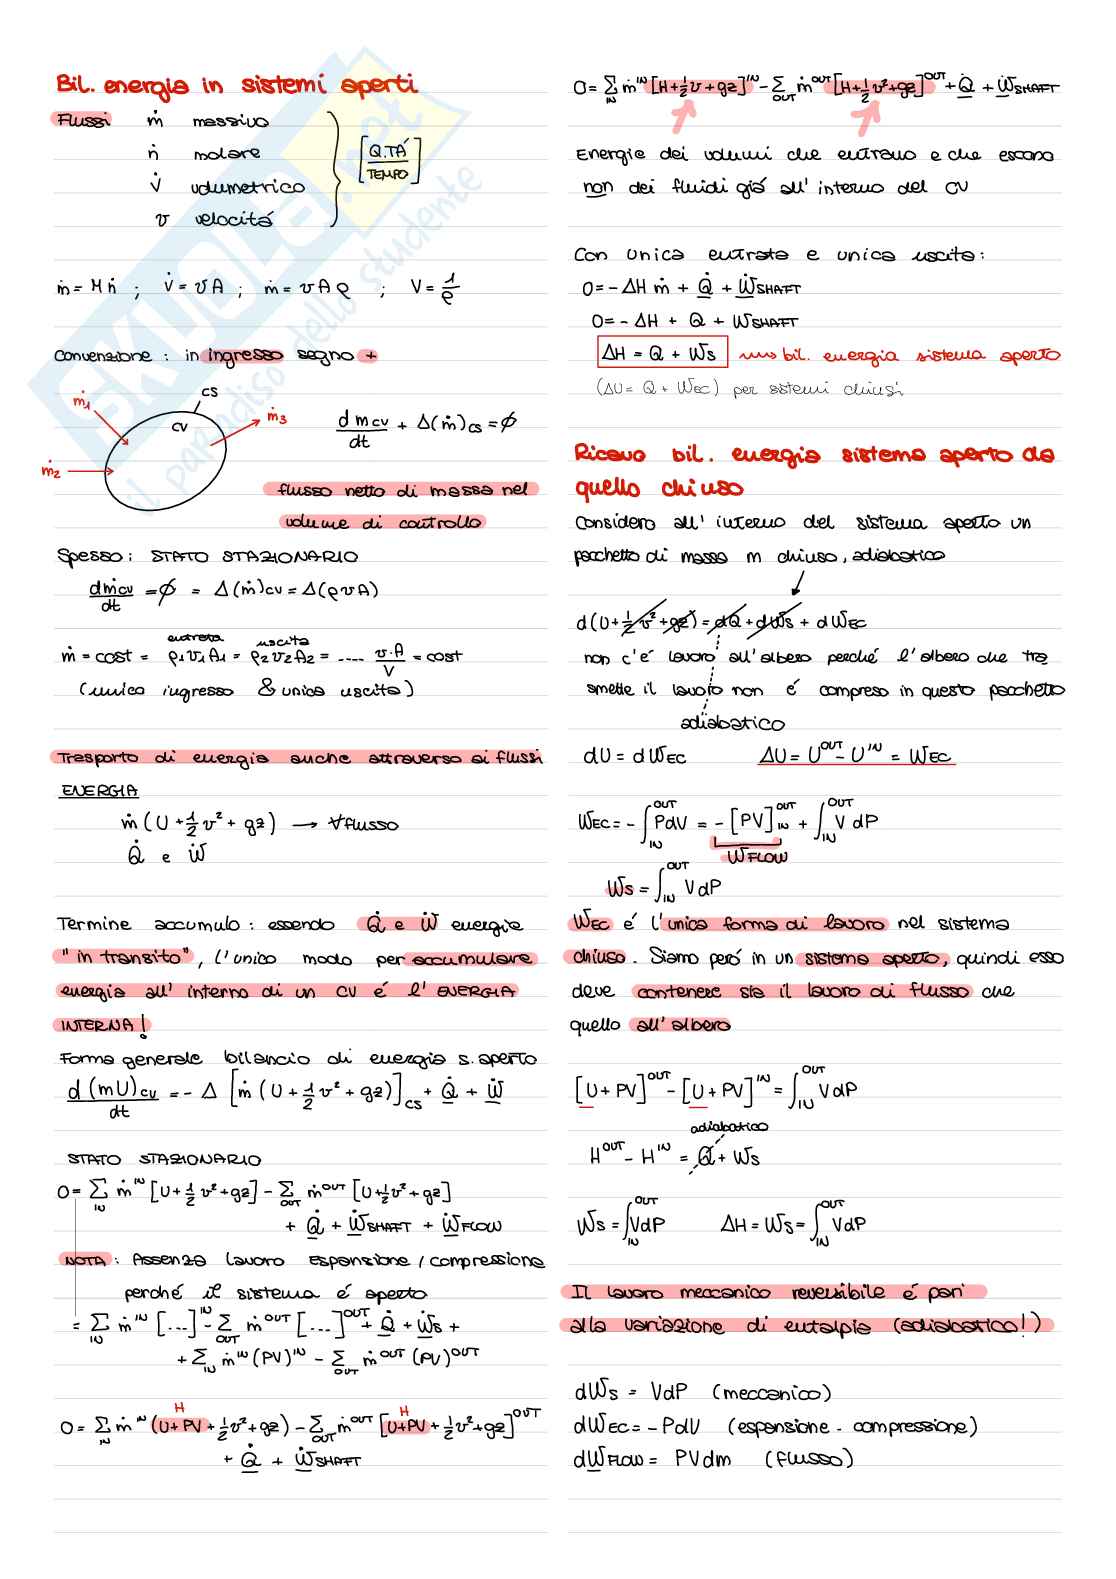 Bil. energia in sistemi aperti
Flussi ṁ massivo
ṅ molare
V̇ volumetrico
v velocitá
[Q.TÁ / TEMPO]
ṁ = M ṅ ; V̇ = vA ; ṁ = vAρ ; V = 1/ρ
Convenzione : in ingresso segno +
ṁ1
ṁ2
ṁ3
CS
CV
d mcv/dt + Δ(ṁ)cs = ϕ
flusso netto di massa nel
volume di controllo
Spesso : STATO STAZIONARIO
dṁcv/dt = ϕ = Δ(ṁ)cv = Δ(ρvA)
entrata uscita
ṁ = cost = ρ1v1A1 = ρ2v2A2 = .... v·A/V = cost
(unico ingresso & unica uscita)
Trasporto di energia anche attraverso ai flussi
ENERGIA
ṁ(U + 1/2 v² + gz) → ∀flusso
Q̇ e Ẇ
Termine accumulo : essendo Q̇ e Ẇ energie
"in transito", l'unico modo per accumulare
energia all'interno di un CV é l'ENERGIA
INTERNA!
Forma generale bilancio di energia s. aperto
d(mU)cv/dt = - Δ[ṁ(U + 1/2 v² + gz)]cs + Q̇ + Ẇ
STATO STAZIONARIO
0 = Σ_IN ṁ^IN [U + 1/2 v² + gz] - Σ_OUT ṁ^OUT [U + 1/2 v² + gz]
+ Q̇ + ẆSHAFT + ẆFLOW
NOTA : Assenza lavoro espansione/compressione
perché il sistema é aperto
= Σ_IN ṁ^IN [...]^IN - Σ_OUT ṁ^OUT [...]^OUT + Q̇ + Ẇs +
+ Σ_IN ṁ^IN (PV)^IN - Σ_OUT ṁ^OUT (PV)^OUT
H H
0 = Σ_IN ṁ^IN (U+PV + 1/2 v² + gz) - Σ_OUT ṁ^OUT [U+PV + 1/2 v² + gz]^OUT
+ Q̇ + ẆSHAFT
0 = Σ_IN ṁ^IN [H + 1/2 v + gz]^IN - Σ_OUT ṁ^OUT [H + 1/2 v² + gz]^OUT + Q̇ + ẆSHAFT
Energie dei volumi che entrano e che escono
non dei fluidi giá all'interno del CV
Con unica entrata e unica uscita:
0 = - ΔH ṁ + Q̇ + ẆSHAFT
0 = - ΔH + Q + WSHAFT
ΔH = Q + Ws bil. energia sistema aperto
(ΔU = Q + WEC) per sistemi chiusi
Ricavo bil. energia sistema aperto da
quello chiuso
Considero all'interno del sistema aperto un
pacchetto di massa m chiuso, adiabatico
d(U + 1/2 v² + gz) = dQ + dWs + dWEC
non c'é lavoro all'albero perché l'albero che tra
smette il lavoro non é compreso in questo pacchetto
adiabatico
dU = dWEC ΔU = U^OUT - U^IN = WEC
WEC = - ∫_IN^OUT PdV = - [PV]_IN^OUT + ∫_IN^OUT V dP
WFLOW
Ws = ∫_IN^OUT VdP
WEC é l'unica forma di lavoro nel sistema
chiuso. Siamo peró in un sistema aperto, quindi esso
deve contenere sia il lavoro di flusso che
quello all'albero
[U + PV]^OUT - [U + PV]^IN = ∫_IN^OUT VdP
adiabatico
H^OUT - H^IN = Q + Ws
Ws = ∫_IN^OUT VdP ΔH = Ws = ∫_IN^OUT VdP
Il lavoro meccanico reversibile é pari
alla variazione di entalpia (adiabatico!)
dWs = VdP (meccanico)
dWEC = - PdV (espansione - compressione)
dWFLOW = PVdm (flusso)
SKUOLA.net
il paradiso dello studente